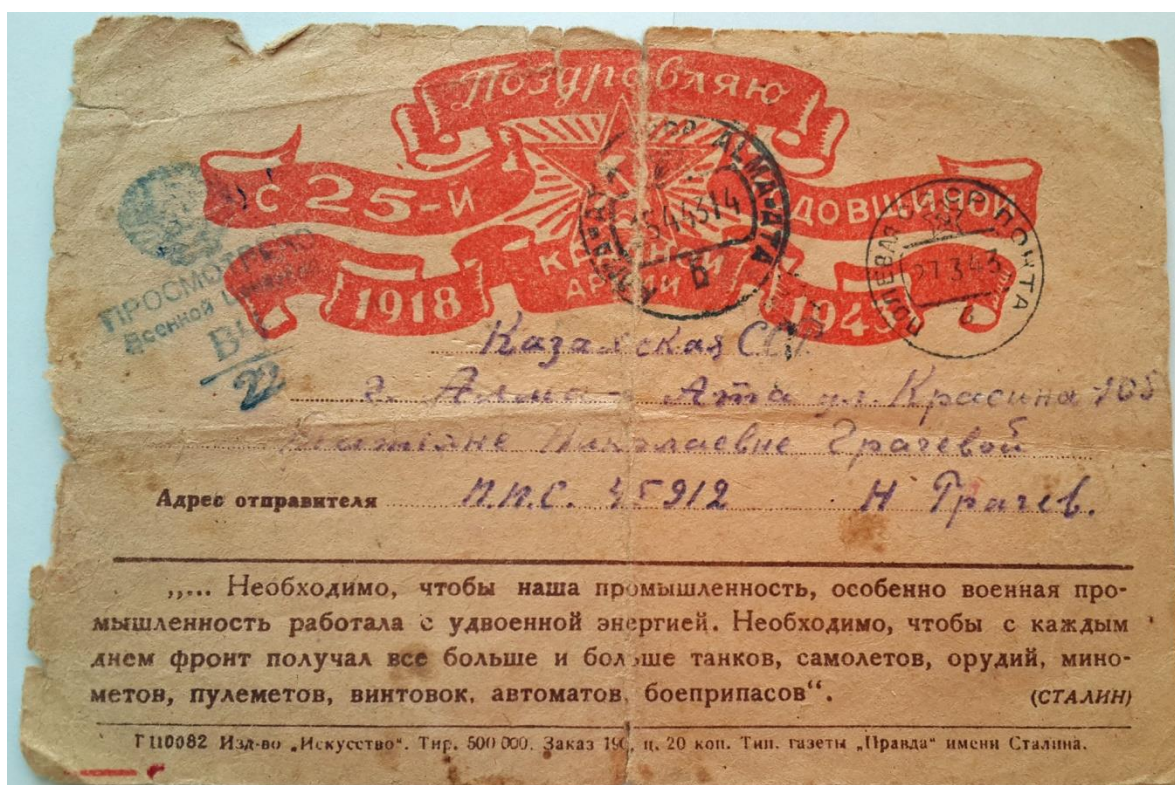 Поздравляю
С 25-й
довщиной
Красной
Армии
1918
1943
ALMA-ATA
ПОЛЕВАЯ ПОЧТА
27.3.43
ПРОСМОТРЕНО
Военной
22
Казахская ССР
г. Алма-Ата ул. Красина 105
Татьяне Николаевне Грачевой
Адрес отправителя П.П.С. 45912 Н Грачев.
„... Необходимо, чтобы наша промышленность, особенно военная про-
мышленность работала с удвоенной энергией. Необходимо, чтобы с каждым
днем фронт получал все больше и больше танков, самолетов, орудий, мино-
метов, пулеметов, винтовок, автоматов, боеприпасов“. (СТАЛИН)
Г110082 Изд-во „Искусство“. Тир. 500 000. Заказ ц. 20 коп. Тип. газеты „Правда“ имени Сталина.